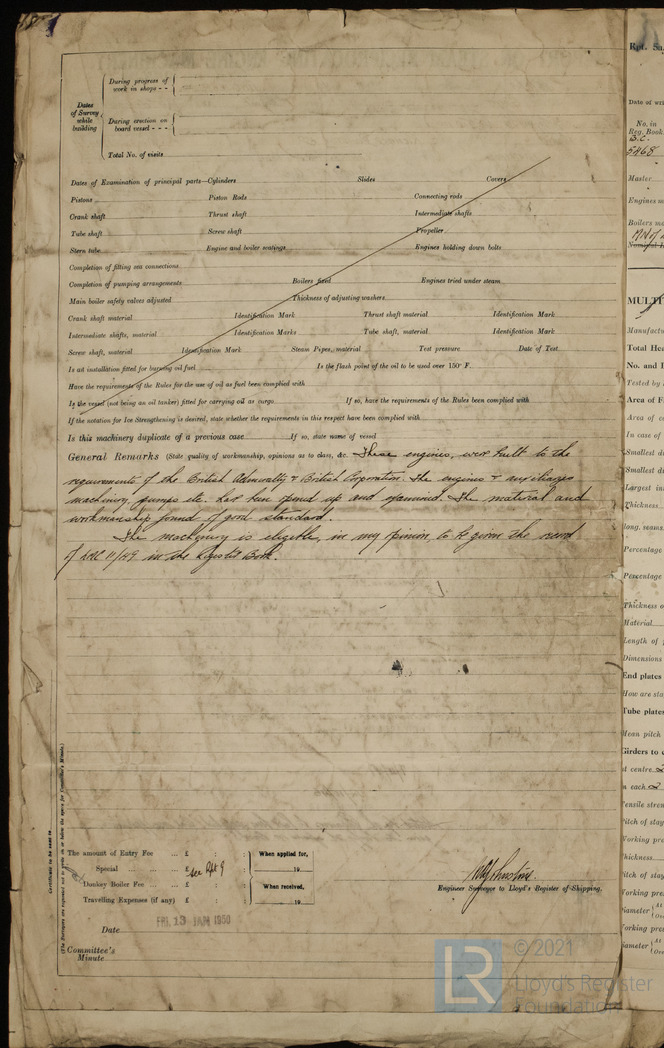 During progress of work in shops - -
Dates of Survey while building
During erection on board vessel - - -
Total No. of visits
Dates of Examination of principal parts—Cylinders Slides Covers
Pistons Piston Rods Connecting rods
Crank shaft Thrust shaft Intermediate shafts
Tube shaft Screw shaft Propeller
Stern tube Engine and boiler seatings Engines holding down bolts
Completion of fitting sea connections
Completion of pumping arrangements Boilers fixed Engines tried under steam
Main boiler safety valves adjusted Thickness of adjusting washers
Crank shaft material Identification Mark Thrust shaft material Identification Mark
Intermediate shafts, material Identification Marks Tube shaft, material Identification Mark
Screw shaft, material Identification Mark Steam Pipes, material Test pressure Date of Test
Is an installation fitted for burning oil fuel Is the flash point of the oil to be used over 150° F.
Have the requirements of the Rules for the use of oil as fuel been complied with
Is the vessel (not being an oil tanker) fitted for carrying oil as cargo If so, have the requirements of the Rules been complied with
If the notation for Ice Strengthening is desired, state whether the requirements in this respect have been complied with
Is this machinery duplicate of a previous case If so, state name of vessel
General Remarks (State quality of workmanship, opinions as to class, &c. These engines, were built to the
requirements of the British Admiralty & British Corporation. The engines & auxiliary
machinery, pumps etc. has been opened up and examined. The material and
workmanship found of good standard.
The machinery is eligible, in my opinion, to be given the record
of LMC 11/49 in the Register Book.
Certificate to be sent to
(The Surveyors are requested not to write on or below the space for Committee's Minute.)
The amount of Entry Fee ... £ : : When applied for,
Special ... ... £ see Rpt 9 19
Donkey Boiler Fee ... £ : : When received,
Travelling Expenses (if any) £ : : 19
Engineer Surveyor to Lloyd's Register of Shipping.
FRI. 13 JAN 1950
Date
Committee's Minute
Rpt. 5a.
No. in Reg. Book
B.C.
5468
Master
MULTI
Total Hea
No. and
Tested by
Area of
In case of
Smallest
Smallest
Largest in
Thickness
long. seams
Percentage
Percentage
Thickness o
Material
Length of
Dimensions
End plates
How are sta
Tube plates
Mean pitch
Girders to
at centre
n each
Tensile stren
Pitch of stay
Working pre
Thickness
Pitch of stay
Working pre
Diameter
Working pre
Diameter
LR
© 2021
Lloyd's Register
Foundation